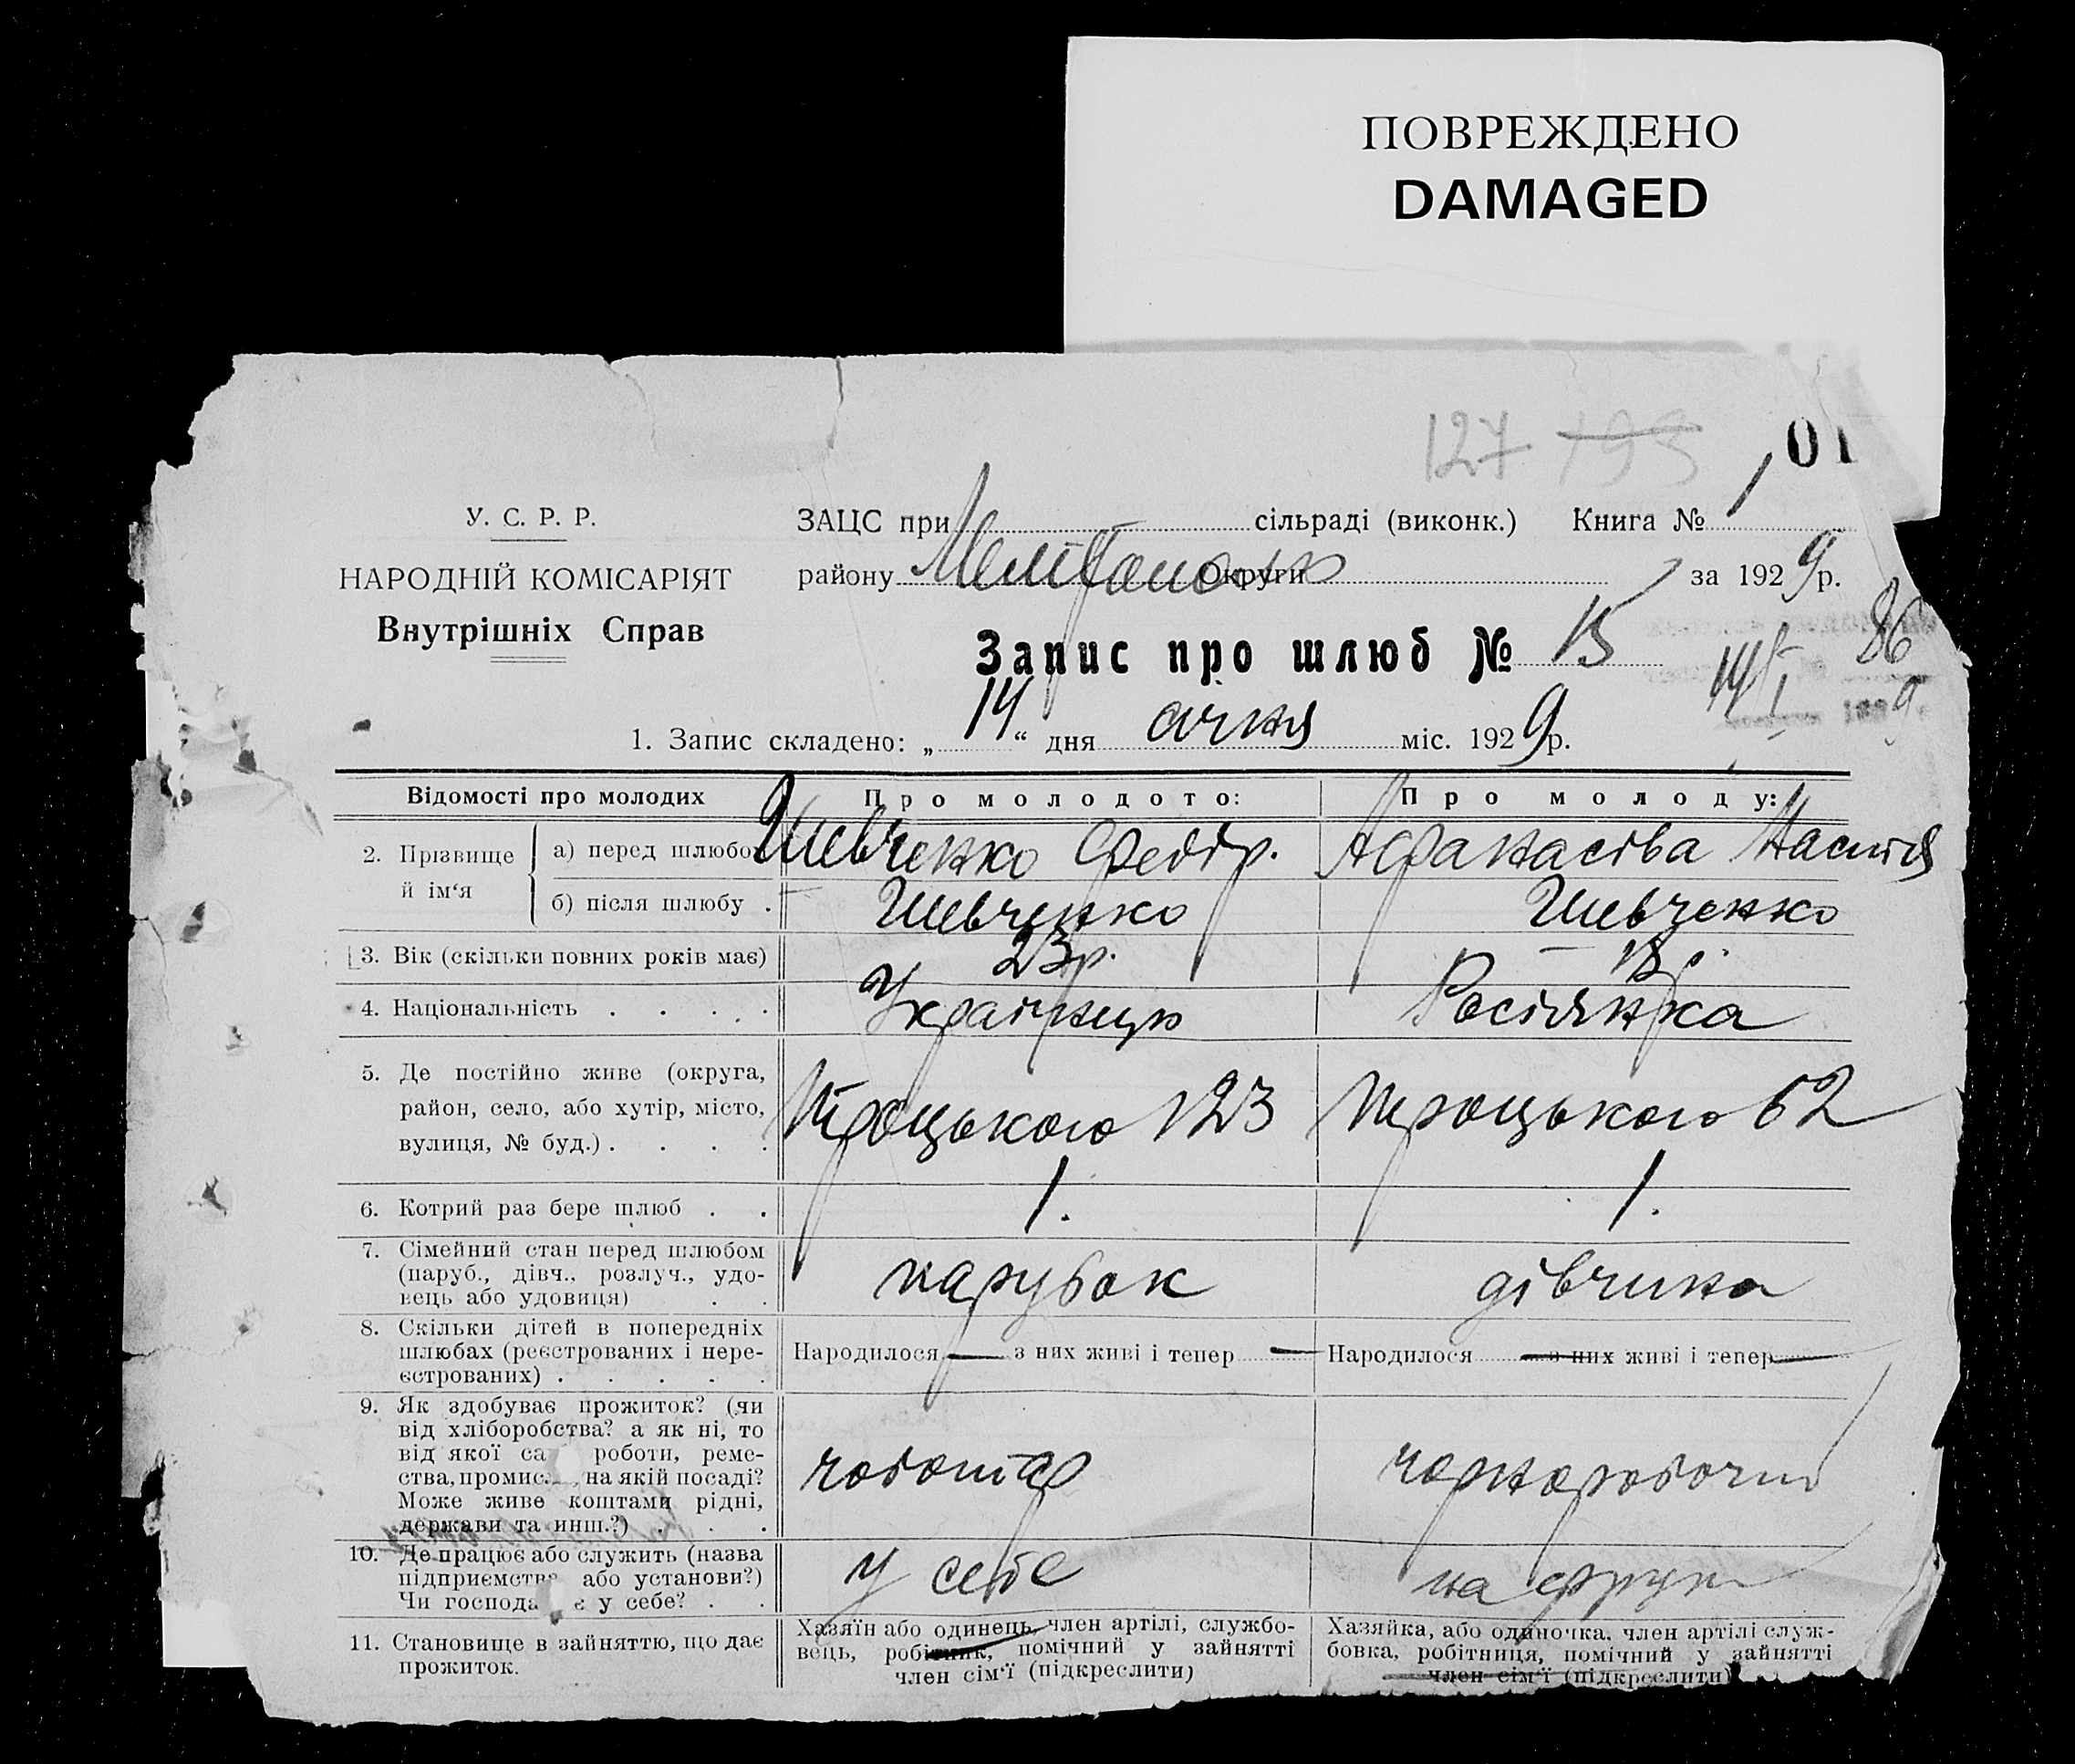 ПОВРЕЖДЕНО
DAMAGED
127 193
01
У. С. Р. Р.
НАРОДНІЙ КОМІСАРІЯТ
Внутрішніх Справ
ЗАЦС при сільраді (виконк.) Книга № 1
району округи за 1929 р.
Запис про шлюб № 15
86
1. Запис складено: „14“ дня січня міс. 1929 р.
Відомості про молодих Про молодого: Про молоду:
2. Прізвище й ім‘я
а) перед шлюбом Шевченко Федір. Афанасієва Настя
б) після шлюбу . Шевченко Шевченко
3. Вік (скільки повних років має) 23 р. 18 р.
4. Національність . . . . Українець Росіянка
5. Де постійно живе (округа,
район, село, або хутір, місто,
вулиця, № буд.) . . . .
Троцького 123 Троцького 62
6. Котрий раз бере шлюб . . 1. 1.
7. Сімейний стан перед шлюбом
(паруб., дівч., розлуч., удо-
вець або удовиця) . .
парубок дівчина
8. Скільки дітей в попередніх
шлюбах (реєстрованих і нере-
єстрованих) . . . . .
Народилося — з них живі і тепер — Народилося — з них живі і тепер —
9. Як здобуває прожиток? (чи
від хліборобства? а як ні, то
від якої са роботи, реме-
ства, промис. , на якій посаді?
Може живе коштами рідні,
держави та инш.?) . . .
чоботар чорноробочий
10. Де працює або служить (назва
підприємства або установи?)
Чи господа є у себе? . .
У себе на
11. Становище в зайняттю, що дає
прожиток.
Хазяїн або одинець, член артілі, службо-
вець, робітник, помічний у зайнятті
член сім‘ї (підкреслити)
Хазяйка, або одиночка, член артілі служ-
бовка, робітниця, помічний у зайнятті
член сім‘ї (підкреслити)